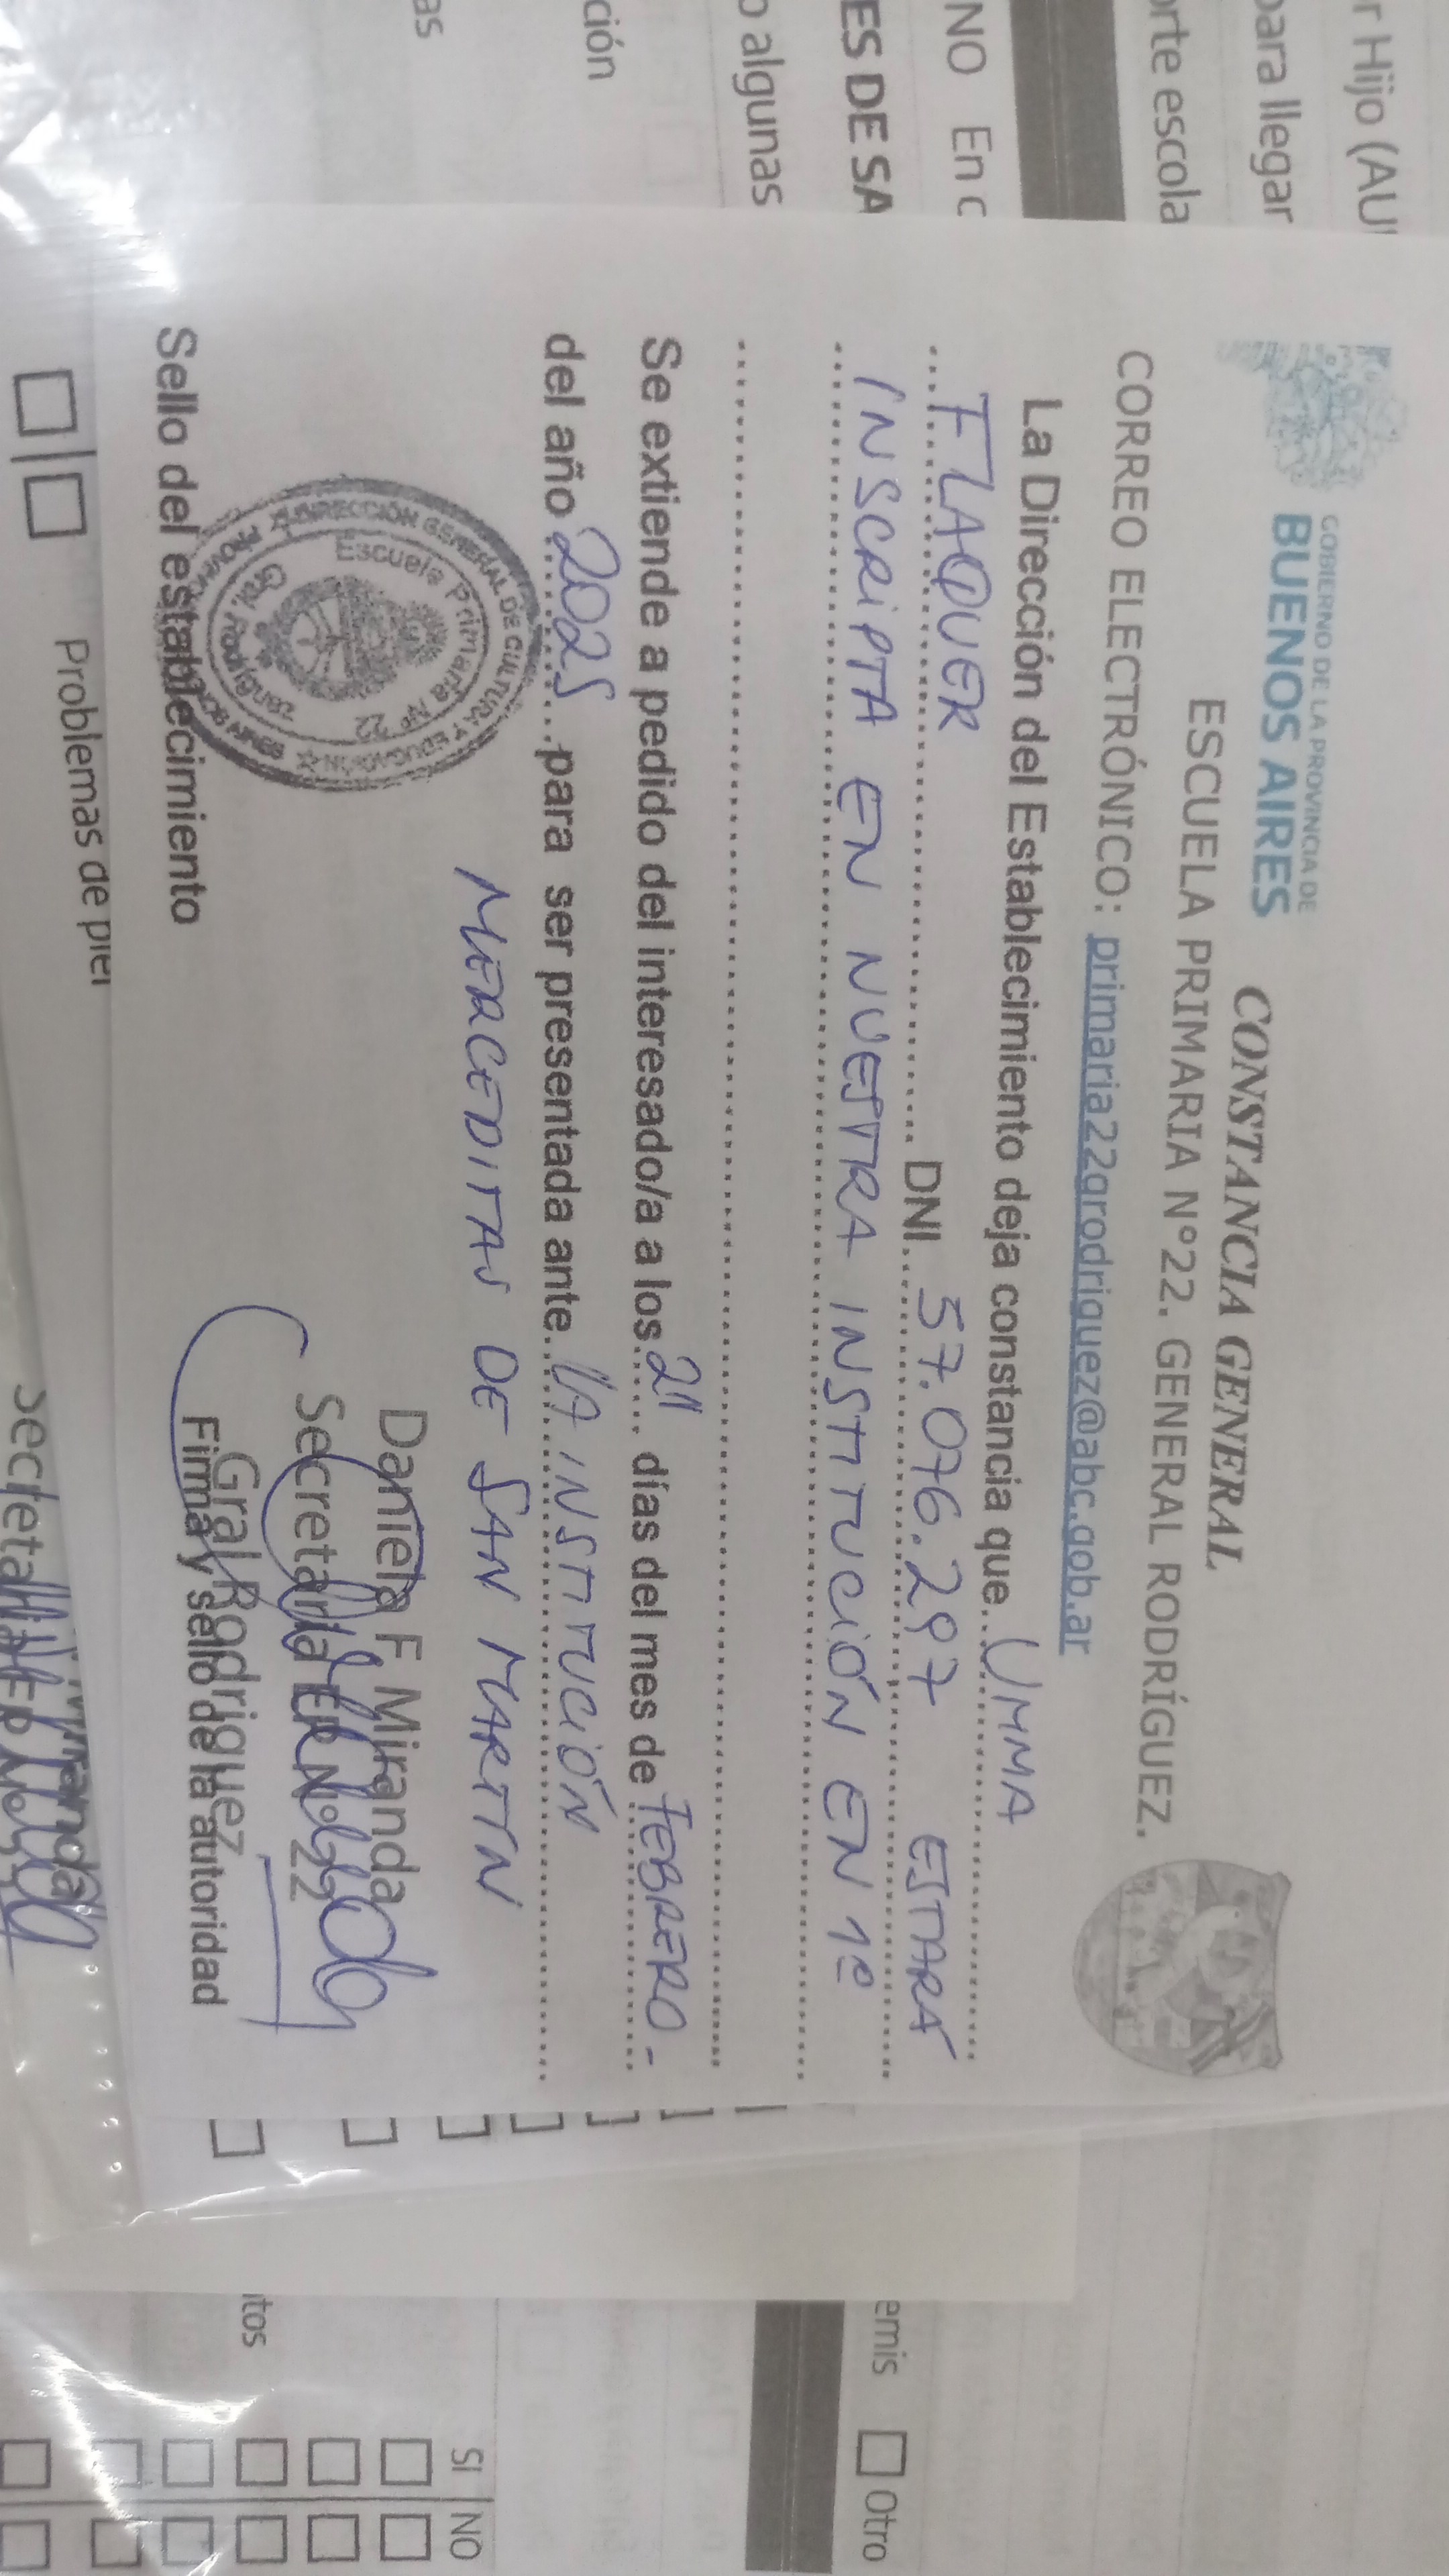 GOBIERNO DE LA PROVINCIA DE
BUENOS AIRES
CONSTANCIA GENERAL
ESCUELA PRIMARIA N°22. GENERAL RODRÍGUEZ.
CORREO ELECTRÓNICO: primaria22grodriguez@abc.gob.ar
La Dirección del Establecimiento deja constancia que...UMMA
...FLAQUER... DNI...57.076.297 ESTARÁ
INSCRIPTA EN NUESTRA INSTITUCIÓN EN 1º
Se extiende a pedido del interesado/a a los 21 días del mes de FEBRERO-
del año 2025 para ser presentada ante... LA INSTITUCIÓN
MERCEDITAS DE SAN MARTIN
DIRECCIÓN GENERAL DE CULTURA Y EDUCACIÓN
Escuela Primaria Nº 22
Gral. Rodríguez
Daniela F Miranda
Secretaria EP Nº 22
Gral Rodriguez
Sello del establecimiento
Firma y sello de la autoridad
r Hijo (AU
para llegar
orte escola
NO En c
ES DE SA
o algunas
ción
as
Problemas de piel
emis
Otro
itos
SI NO